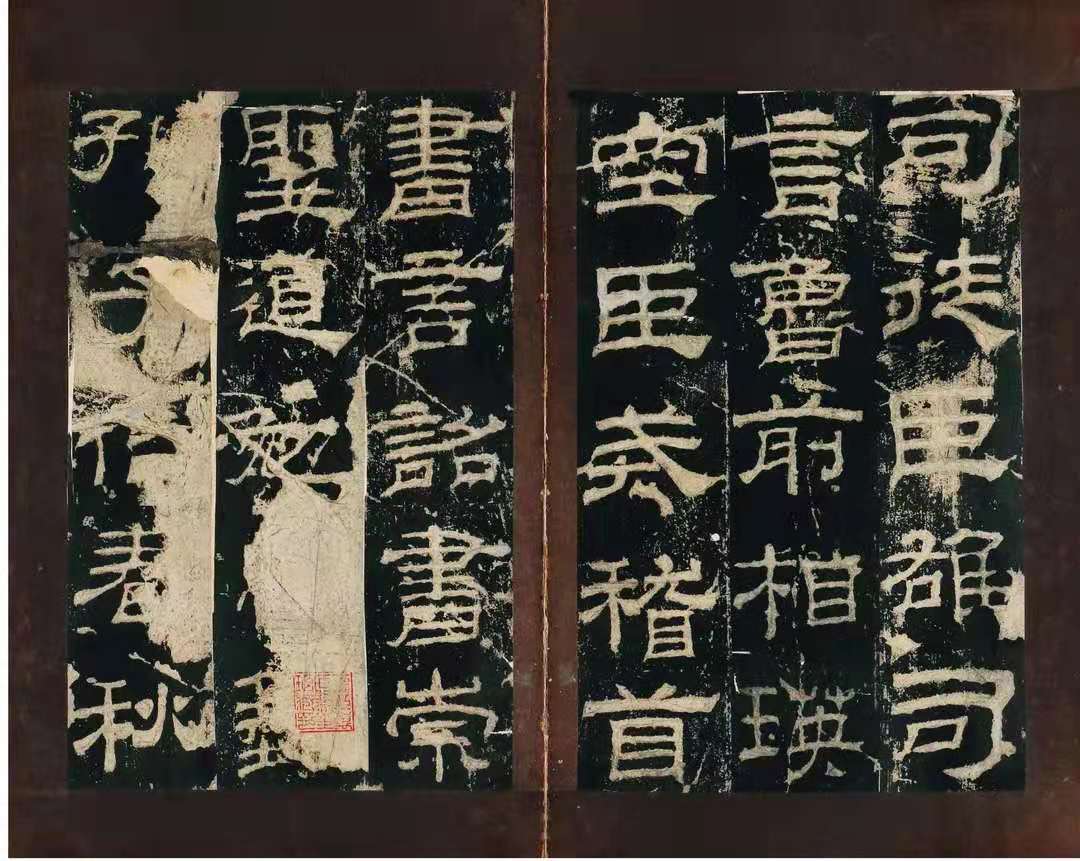 司徒臣雄司
言魯前相瑛
空臣戒稽首
書言詔書崇
聖道
孔子作春秋